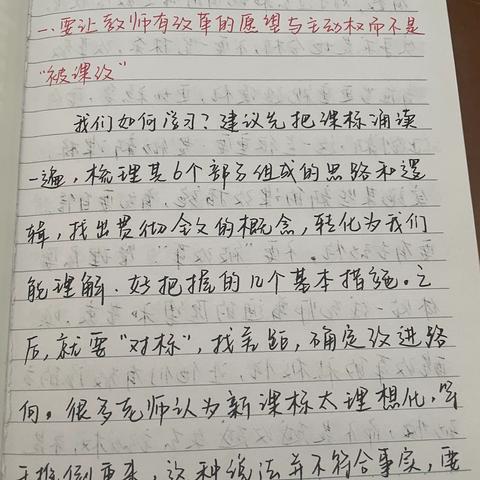 一、要让教师有改革的愿望与主动权而不是
“被课改”
我们如何学习？建议先把课标通读
一遍，梳理其6个部分组成的思路和逻
辑，找出贯彻全文的概念，转化为我们
能理解、好把握的几个基本措施。之
后，就要“对标”，找差距，确定改进路
向。很多老师认为新课标太理想化，等
于推倒重来，这种说法并不符合事实，要